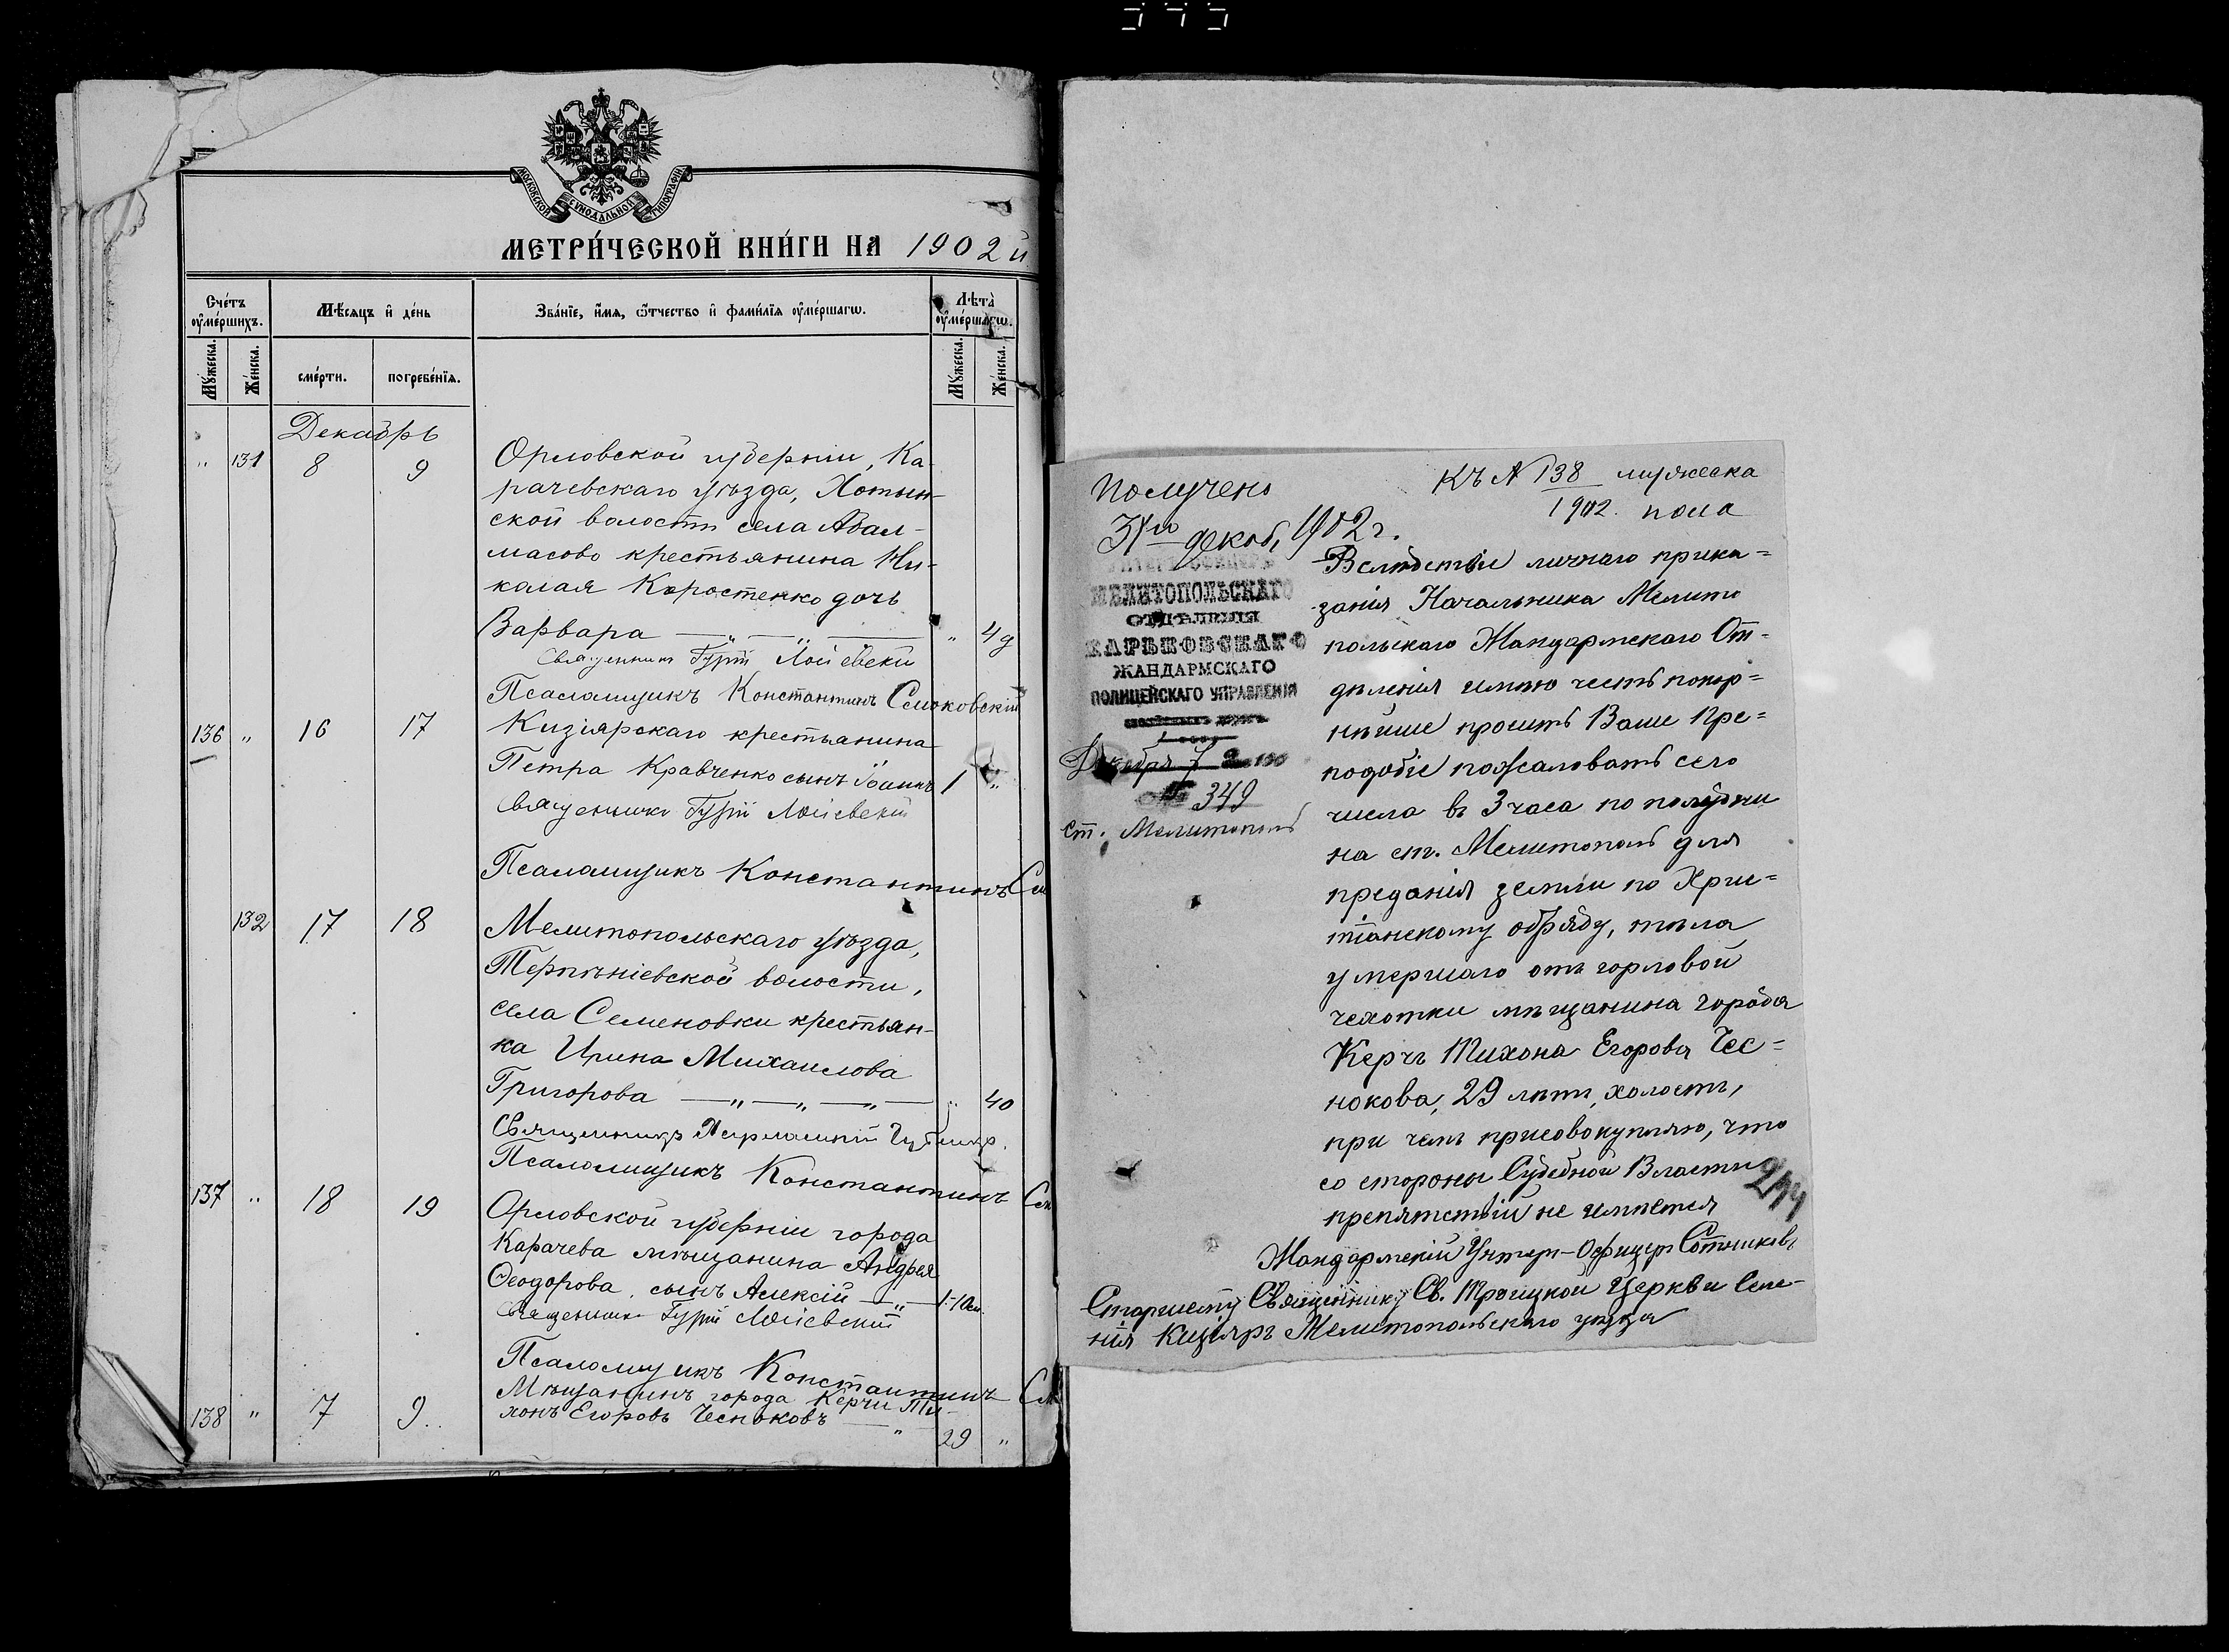 МОСКОВСКОЙ СѴНОДАЛЬНОЙ ТИПОГРАФІИ
МЕТРИ́ЧЕСКОЙ КНИ́ГИ НА 1902 й
Счетъ оумершихъ.
Мѣсяцъ и день
Званіе, имя, отчество и фамилія оумершагѡ.
Лѣта оумершагѡ.
Мужеска.
Женска.
смерти.
погребенія.
Мужеска.
Женска.
Декабрь
" 131 8 9 Орловской губерніи, Ка-
рачевскаго уѣзда, Хотын-
ской волости села Абал-
масово крестьянина Ни-
калая Коростенко дочь
Варвара — " — " — " 4 д
Священникъ Гурій
Псаломщикъ Константинъ
136 " 16 17 Кизіярскаго крестьянина
Петра Кравченко сынъ Іоаннъ 1 "
Священникъ Гурій
Псаломщикъ Константинъ См
132 17 18 Мелитопольскаго уѣзда,
Терпѣніевской волости,
села Семеновки крестьян-
ка Ирина Михаилова
Григорова — " — " — " — " 40
Священникъ
Псаломщикъ Константинъ См
137 " 18 19 Орловской губерніи города
Карачева мѣщанина Андрея
Ѳеодорова сынъ Алексій — "
Священникъ Гурій
Псаломщикъ Константинъ См
138 " 7 9 Мѣщанинъ города Керчи Ти-
хонъ Егоровъ Чесноковъ — " 29 "
Получено
декаб. 1902 г.
Къ № 138 мужеска
1902. пола
МЕЛИТОПОЛЬСКАГО
ОТДѢЛЕНІЯ
ХАРЬКОВСКАГО
ЖАНДАРМСКАГО
ПОЛИЦЕЙСКАГО УПРАВЛЕНІЯ
желѣзныхъ дорогъ.
Декабря 7 2 190
№ 349
ст. Мелитополь
Вслѣдствіе личнаго прика=
занія Начальника Мелито
польскаго Жандармскаго От=
дѣленія имѣю честь покор=
нѣйше просить Ваше Пре=
подобіе пожаловать сего
числа въ 3 часа по полудни
на ст. Мелитополь для
преданія земли по Хрис=
тіанскому обряду, тѣла
умершаго отъ горловой
чехотки мѣщанина города
Керчъ Тихона Егорова Чес=
нокова, 29 лѣтъ, холостъ,
при чемъ присовокупляю, что
со стороны Судебной Власти
препятствій не имѣется
244
Жандармскій Унтеръ-Офицеръ Сотниковъ
Старшему Священнику Св. Троицкой Церкви Селе-
нія Кизіяръ Мелитопольскаго уѣзда